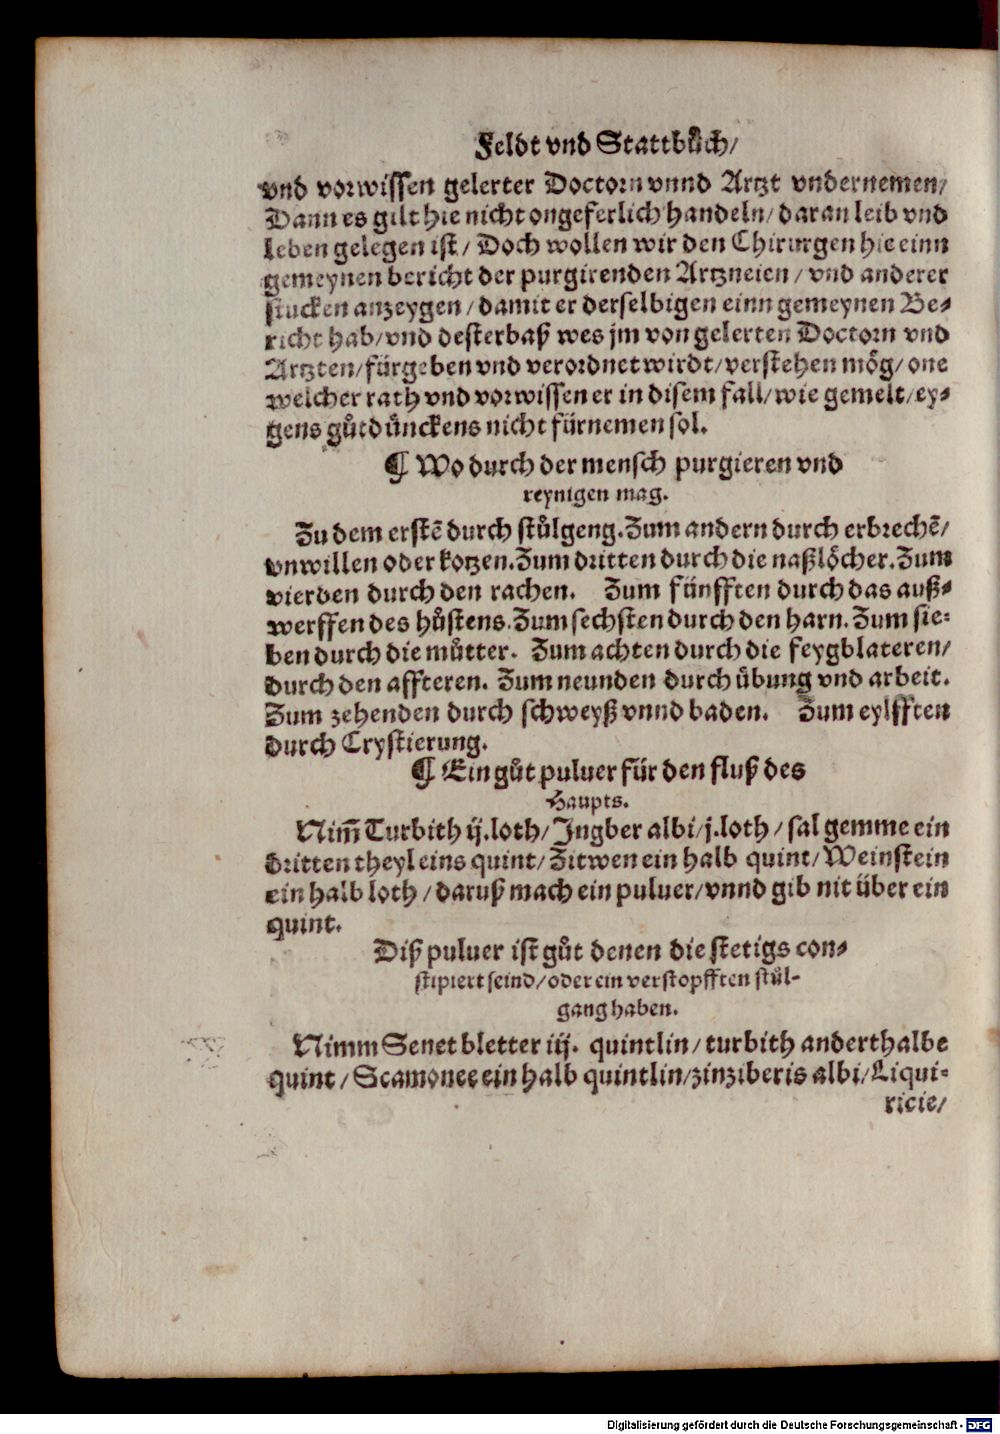 Feldt vnd Stattbůch/
vnd vorwissen gelerter Doctorn vnnd Artzt vndernemen/
Dann es gilt hie nicht ongeferlich handeln/ daran leib vnd
leben gelegen ist/ Doch wollen wir den Chirurgen hie einn
gemeynen bericht der purgirenden Artzneien / vnd anderer
stucken anzeygen / damit er derselbigen einn gemeynen Be⸗
richt hab/ vnd desterbaß wes jm von gelerten Doctorn vnd
Artzten/ fürgeben vnd verordnet wirdt/ verstehen mög/ one
welcher rath vnd vorwissen er in disem fall/ wie gemelt/ ey⸗
gens gůtdünckens nicht fürnemen sol.
¶ Wo durch der mensch purgieren vnd
reynigen mag.
Zu dem erstē durch stůlgeng. Zum andern durch erbrechē/
vnwillen oder kotzen. Zum dritten durch die naßlöcher. Zum
vierden durch den rachen. Zum fünfften durch das auß⸗
werffen des hůstens. Zum sechsten durch den harn. Zum sie⸗
ben durch die můtter. Zum achten durch die feygblateren/
durch den affteren. Zum neunden durch übung vnd arbeit.
Zum zehenden durch schweyß vnnd baden. Zum eylfften
durch Crystierung.
¶ Ein gůt puluer für den fluß des
Haupts.
Nim̄ Turbith ij. loth/ Jngber albi/ j. loth / sal gemme ein
dritten theyl eins quint/ Zitwen ein halb quint/ Weinstein
ein halb loth / daruß mach ein puluer/ vnnd gib nit über ein
quint.
Diß puluer ist gůt denen die stetigs con⸗
stipiert seind/ oder ein verstopfften stůl-
gang haben.
Nimm Senet bletter iij. quintlin/ turbith anderthalbe
quint / Scamonee ein halb quintlin/ zinziberis albi/ Liqui⸗
ricie/
Digitalisierung gefördert durch die Deutsche Forschungsgemeinschaft - DFG